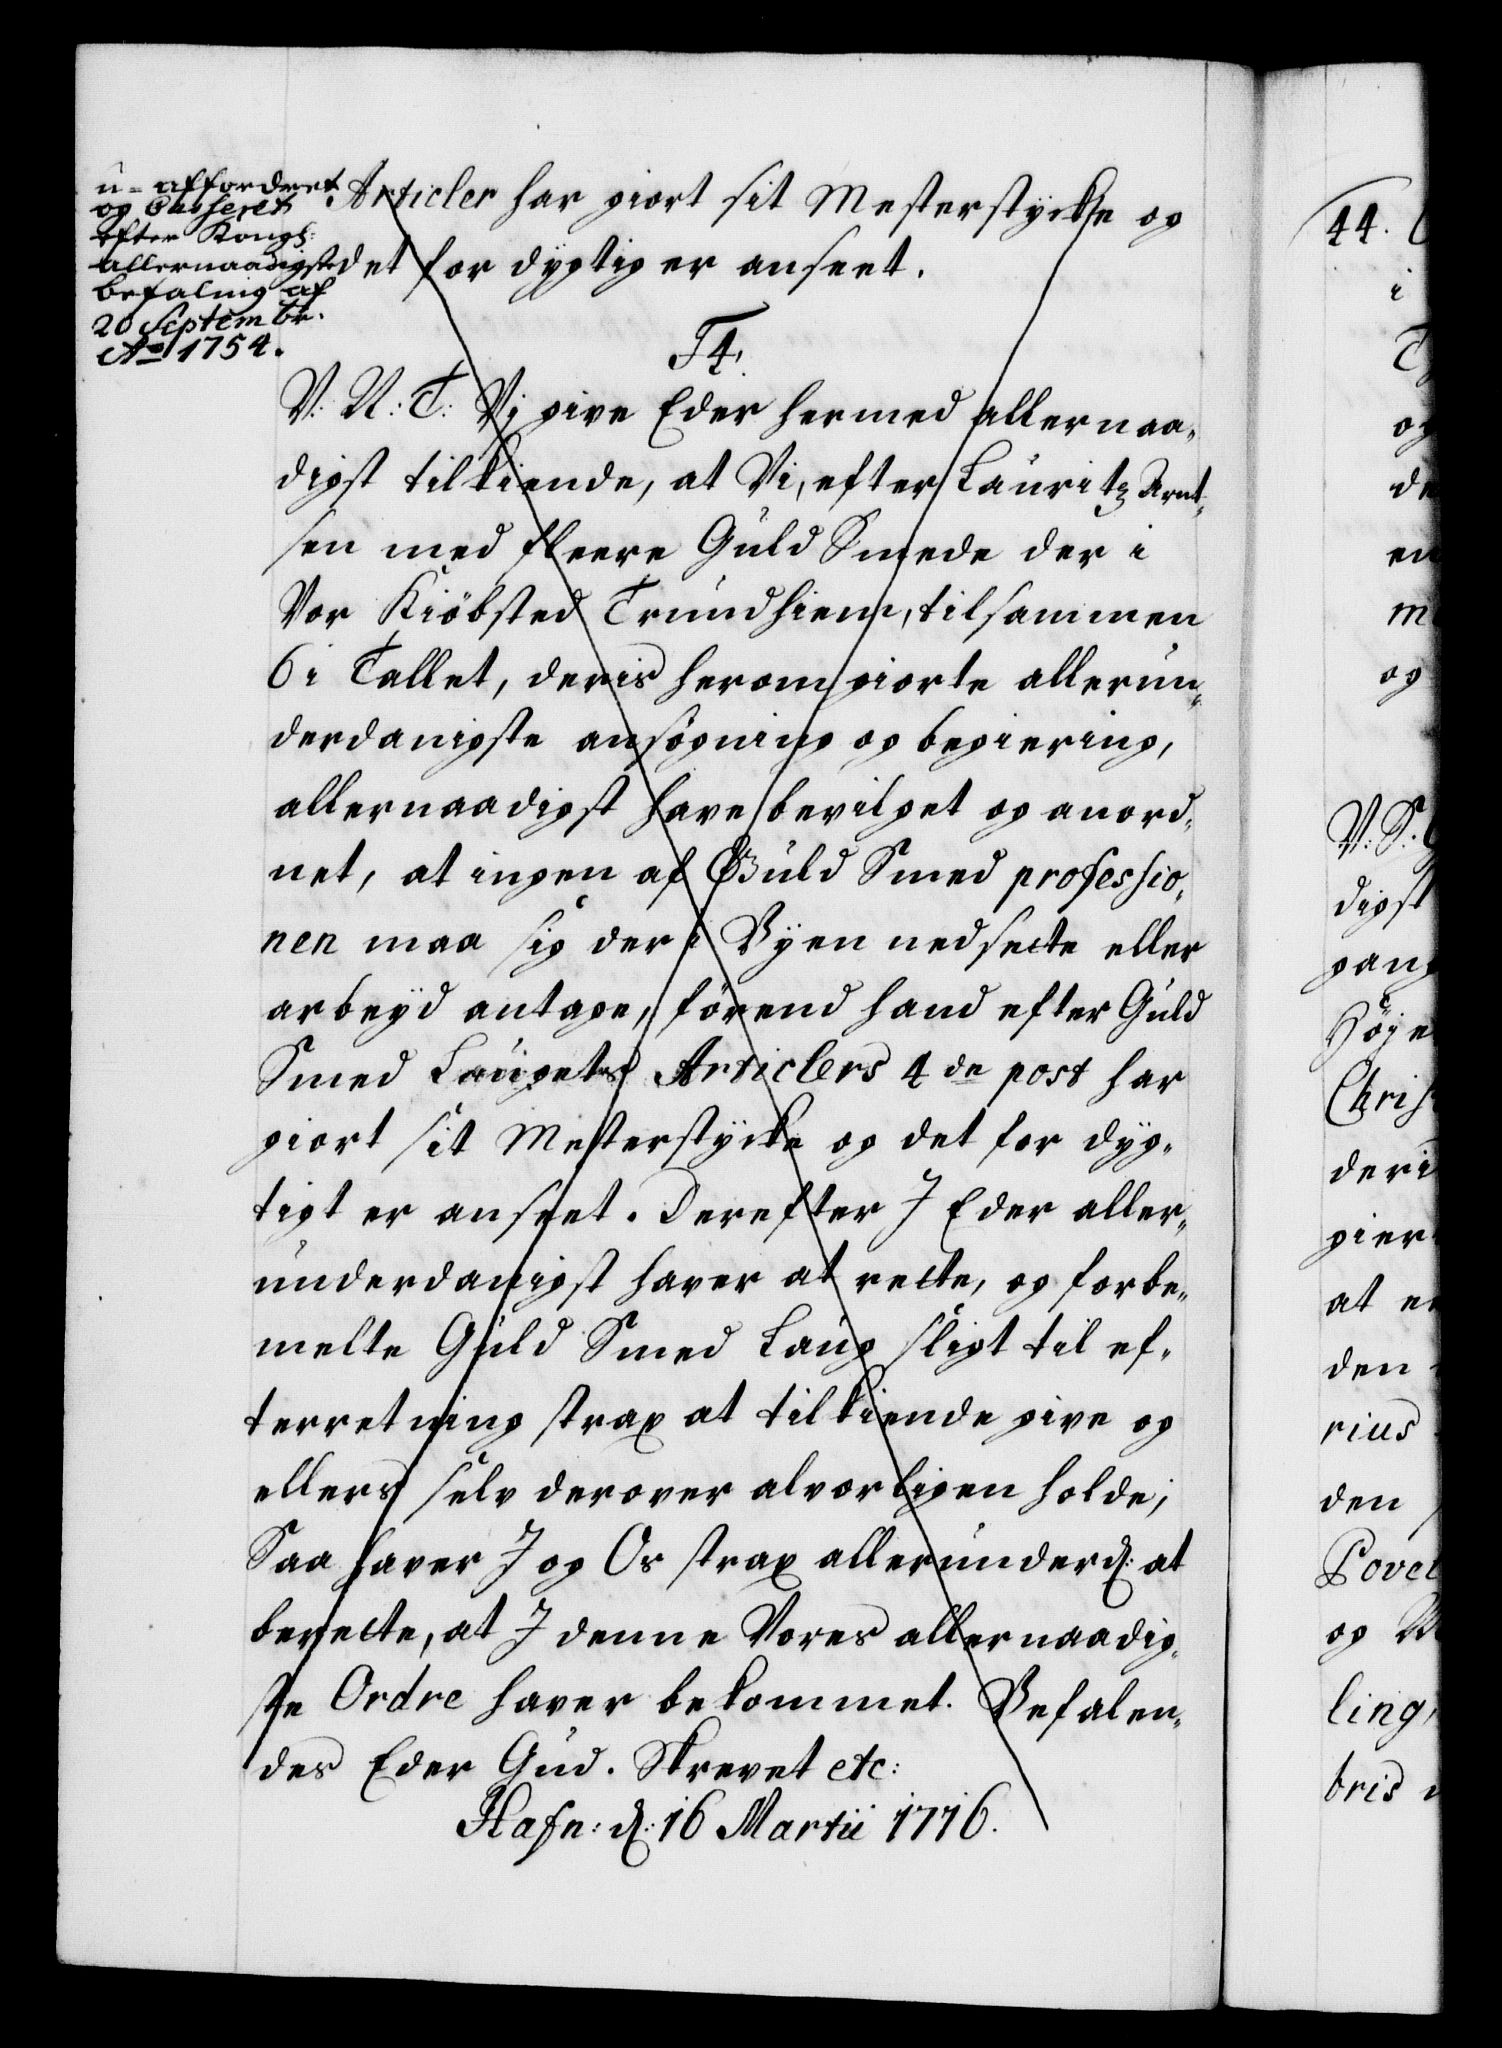 u-affordret
og Casseret
efter Kongl:
allernaadigste
befaling af
20 Septembr.
Ao 1754.
Articler har giort sit Mesterstyckke og
det for dygtig er anseet.
T4.
V: U: T: Vj give Eder hermed allernaa-
digst tilkiende, at Vi, efter Lauritz Arnt-
sen med fleere Guld Smede der i
Vor Kiöbsted Trundhiem, tilsammen
6 i Tallet, deris herom giorte allerun-
derdanigste ansögning og begiering,
allernaadigst have bevilget og anord-
net, at ingen af Guld Smed professio-
nen maa sig der i Byen nedsette eller
arbeyd antage, förend hand efter Guld
Smed Laugets Articlers 4de post har
giort sit Mesterstycke og det for dyg-
tigt er anseet. Derefter J Eder aller-
underdanigst haver at rette, og forbe-
melte Guld Smed Laug sligt til ef-
terretning strax at tilkiende give og
ellers selv derover alvorligen holde;
Saa haver J og Os strax allerunderd: at
berette, at J denne Vores allernaadig-
ste Ordre haver bekommet. Befalen-
des Eder Gud. Skrevet etc:
Hafn: d: 16 Martii 1716.
44.
i
og
de
en
me
og
V: S:
digst
gang
Höje
Chris
deri
gier
at
den
rius
den
Povel
og
ling,
bris